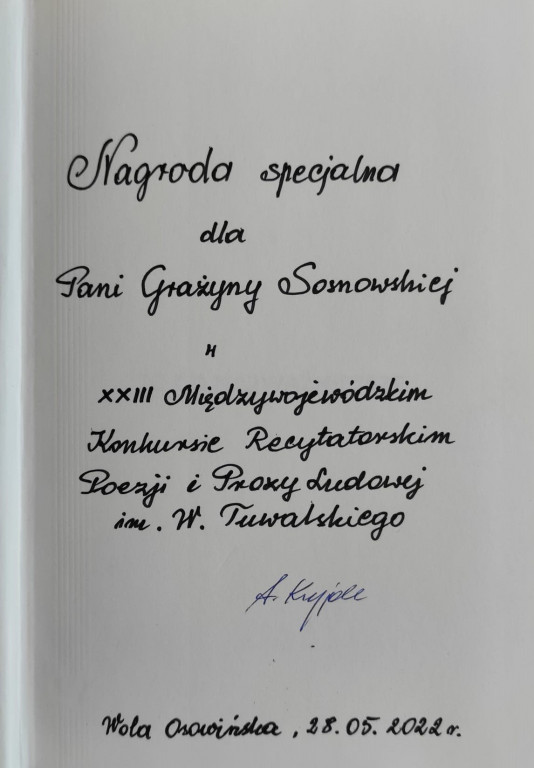 Nagroda specjalna
dla
Pani Grażyny Sosnowskiej
w
XXIII Międzywojewódzkim
Konkursie Recytatorskim
Poezji i Prozy Ludowej
im. W. Tuwalskiego
A.
Wola Osowińska, 28.05.2022 r.